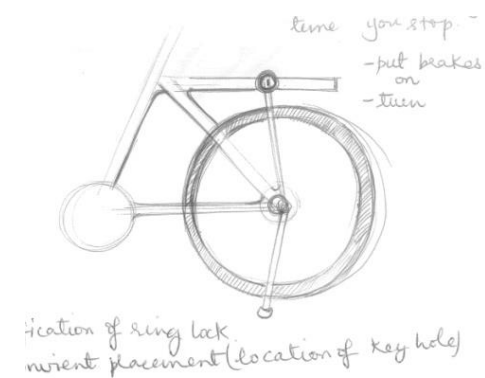 time you stop.
-put brakes
on
-turn
ication of ring lock
nvient placement (location of key hole)